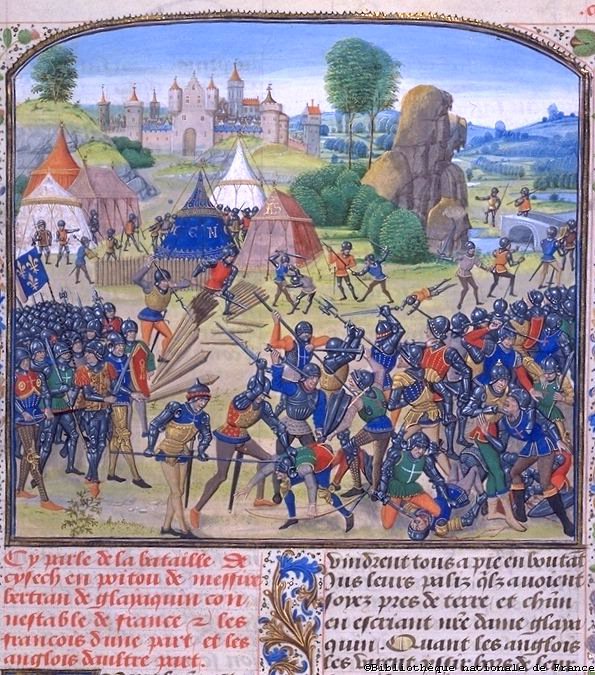 C N
Cy parle de la bataille de
cysech en poitou de messire
bertran de glayaquin con
nestable de france & les
francois dune part et les
anglois daultre part.
vindrent tous a pie en boutāt
Ius leurs paliz q̄lz auoient
soyez pres de terre et chūn
en escriant nr̄e dame glaya
quin. Quant les anglois
les
©Bibliothèque nationale de France